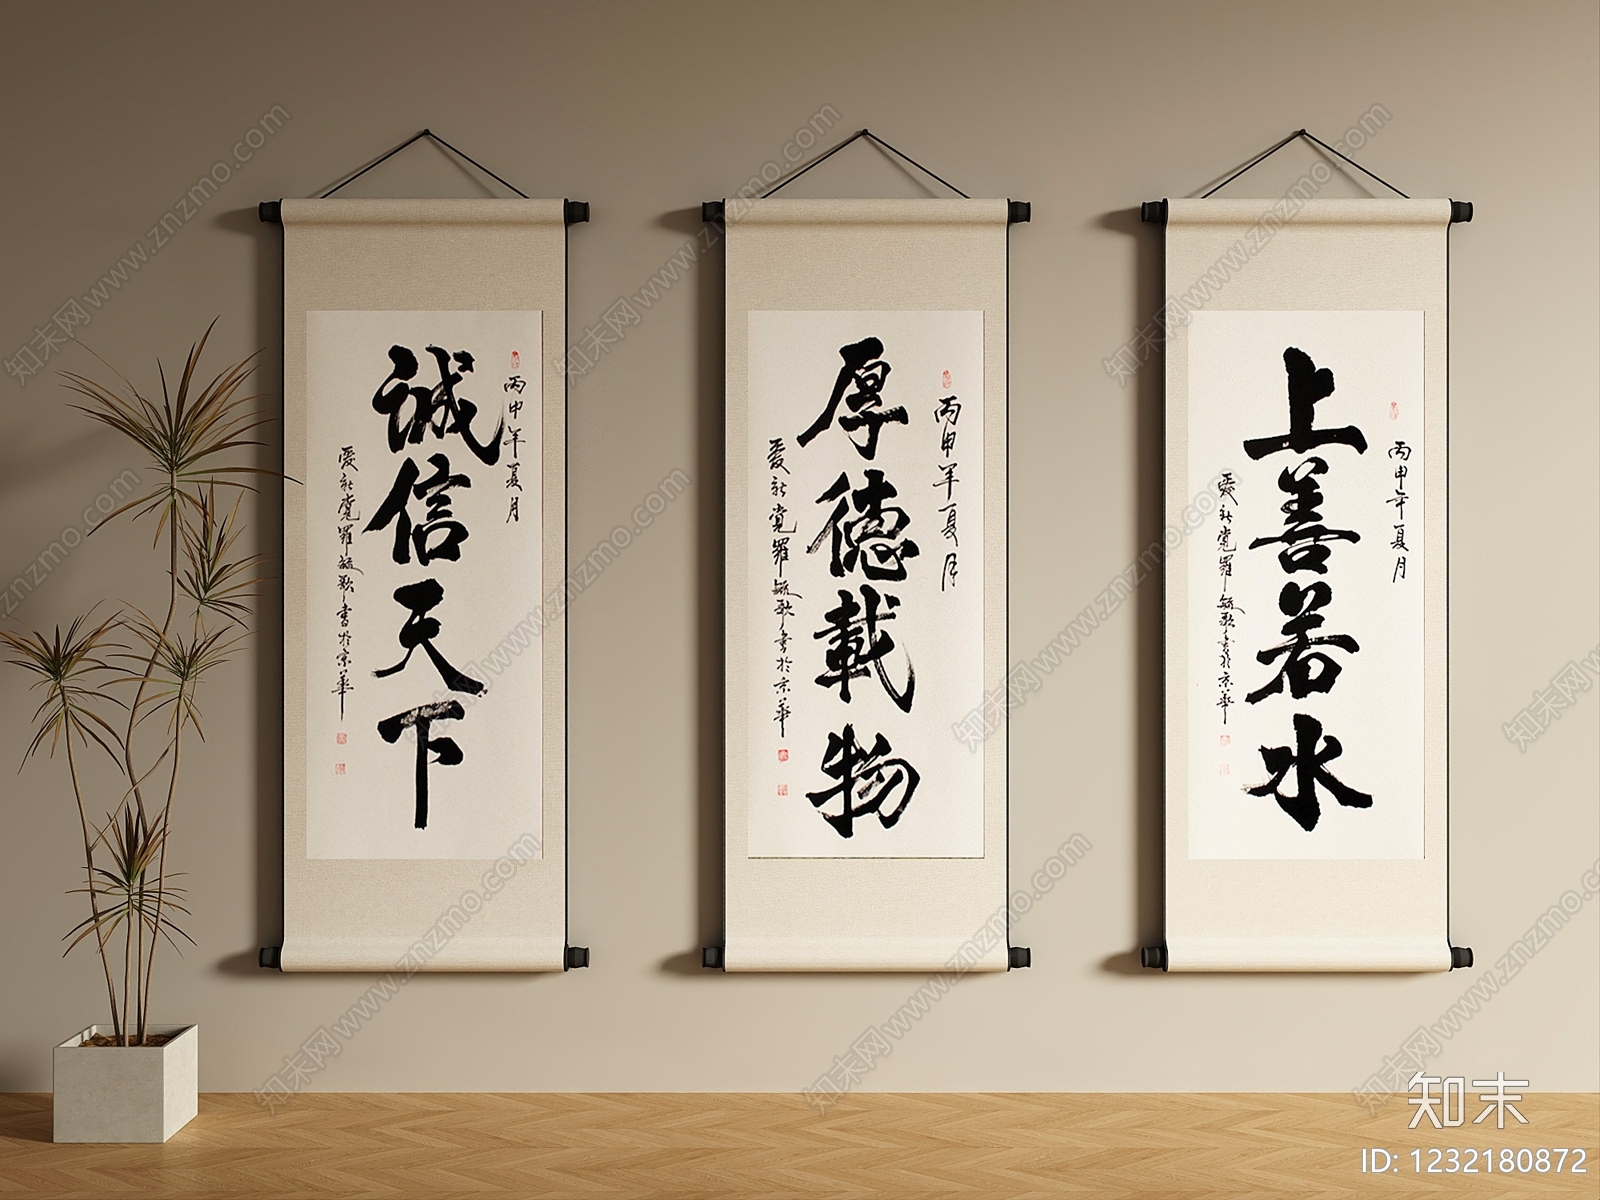 誠信天下
丙申年夏月
愛新覺羅毓歌書於京華
厚德載物
丙申年夏月
愛新覺羅毓歌書於京華
上善若水
丙申年夏月
愛新覺羅毓歌書於京華
知末网www.znzmo.com
知末
ID: 1232180872